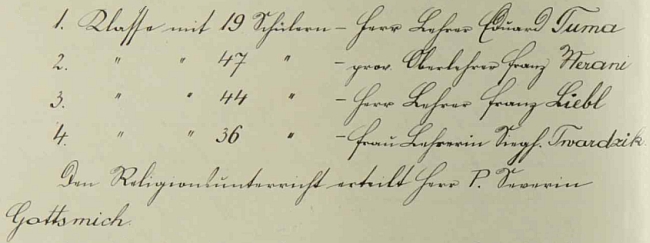 1. Klasse mit 19 Schülern – Herr Lehrer Eduard Tuma
2. " " 47 " – prov. Oberlehrer Franz Werani
3. " " 44 " – Herr Lehrer Franz Liebl
4. " " 36 " – Frau Lehrerin Siegh. Twardzik.
Den Religionsunterricht erteilt Herr P. Severin
Gottsmich.